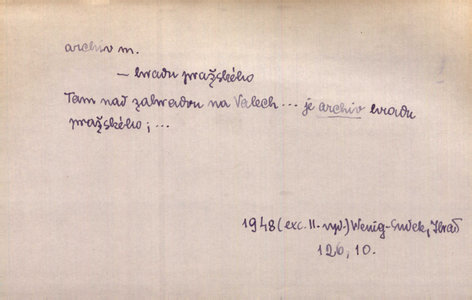 archiv m.
— hradu pražského
Tam nad zahradou na Valech ... je archiv hradu
pražského; ...
1948 (exc. II. vyd.) Wenig-Sudek, Hrad
126, 10.